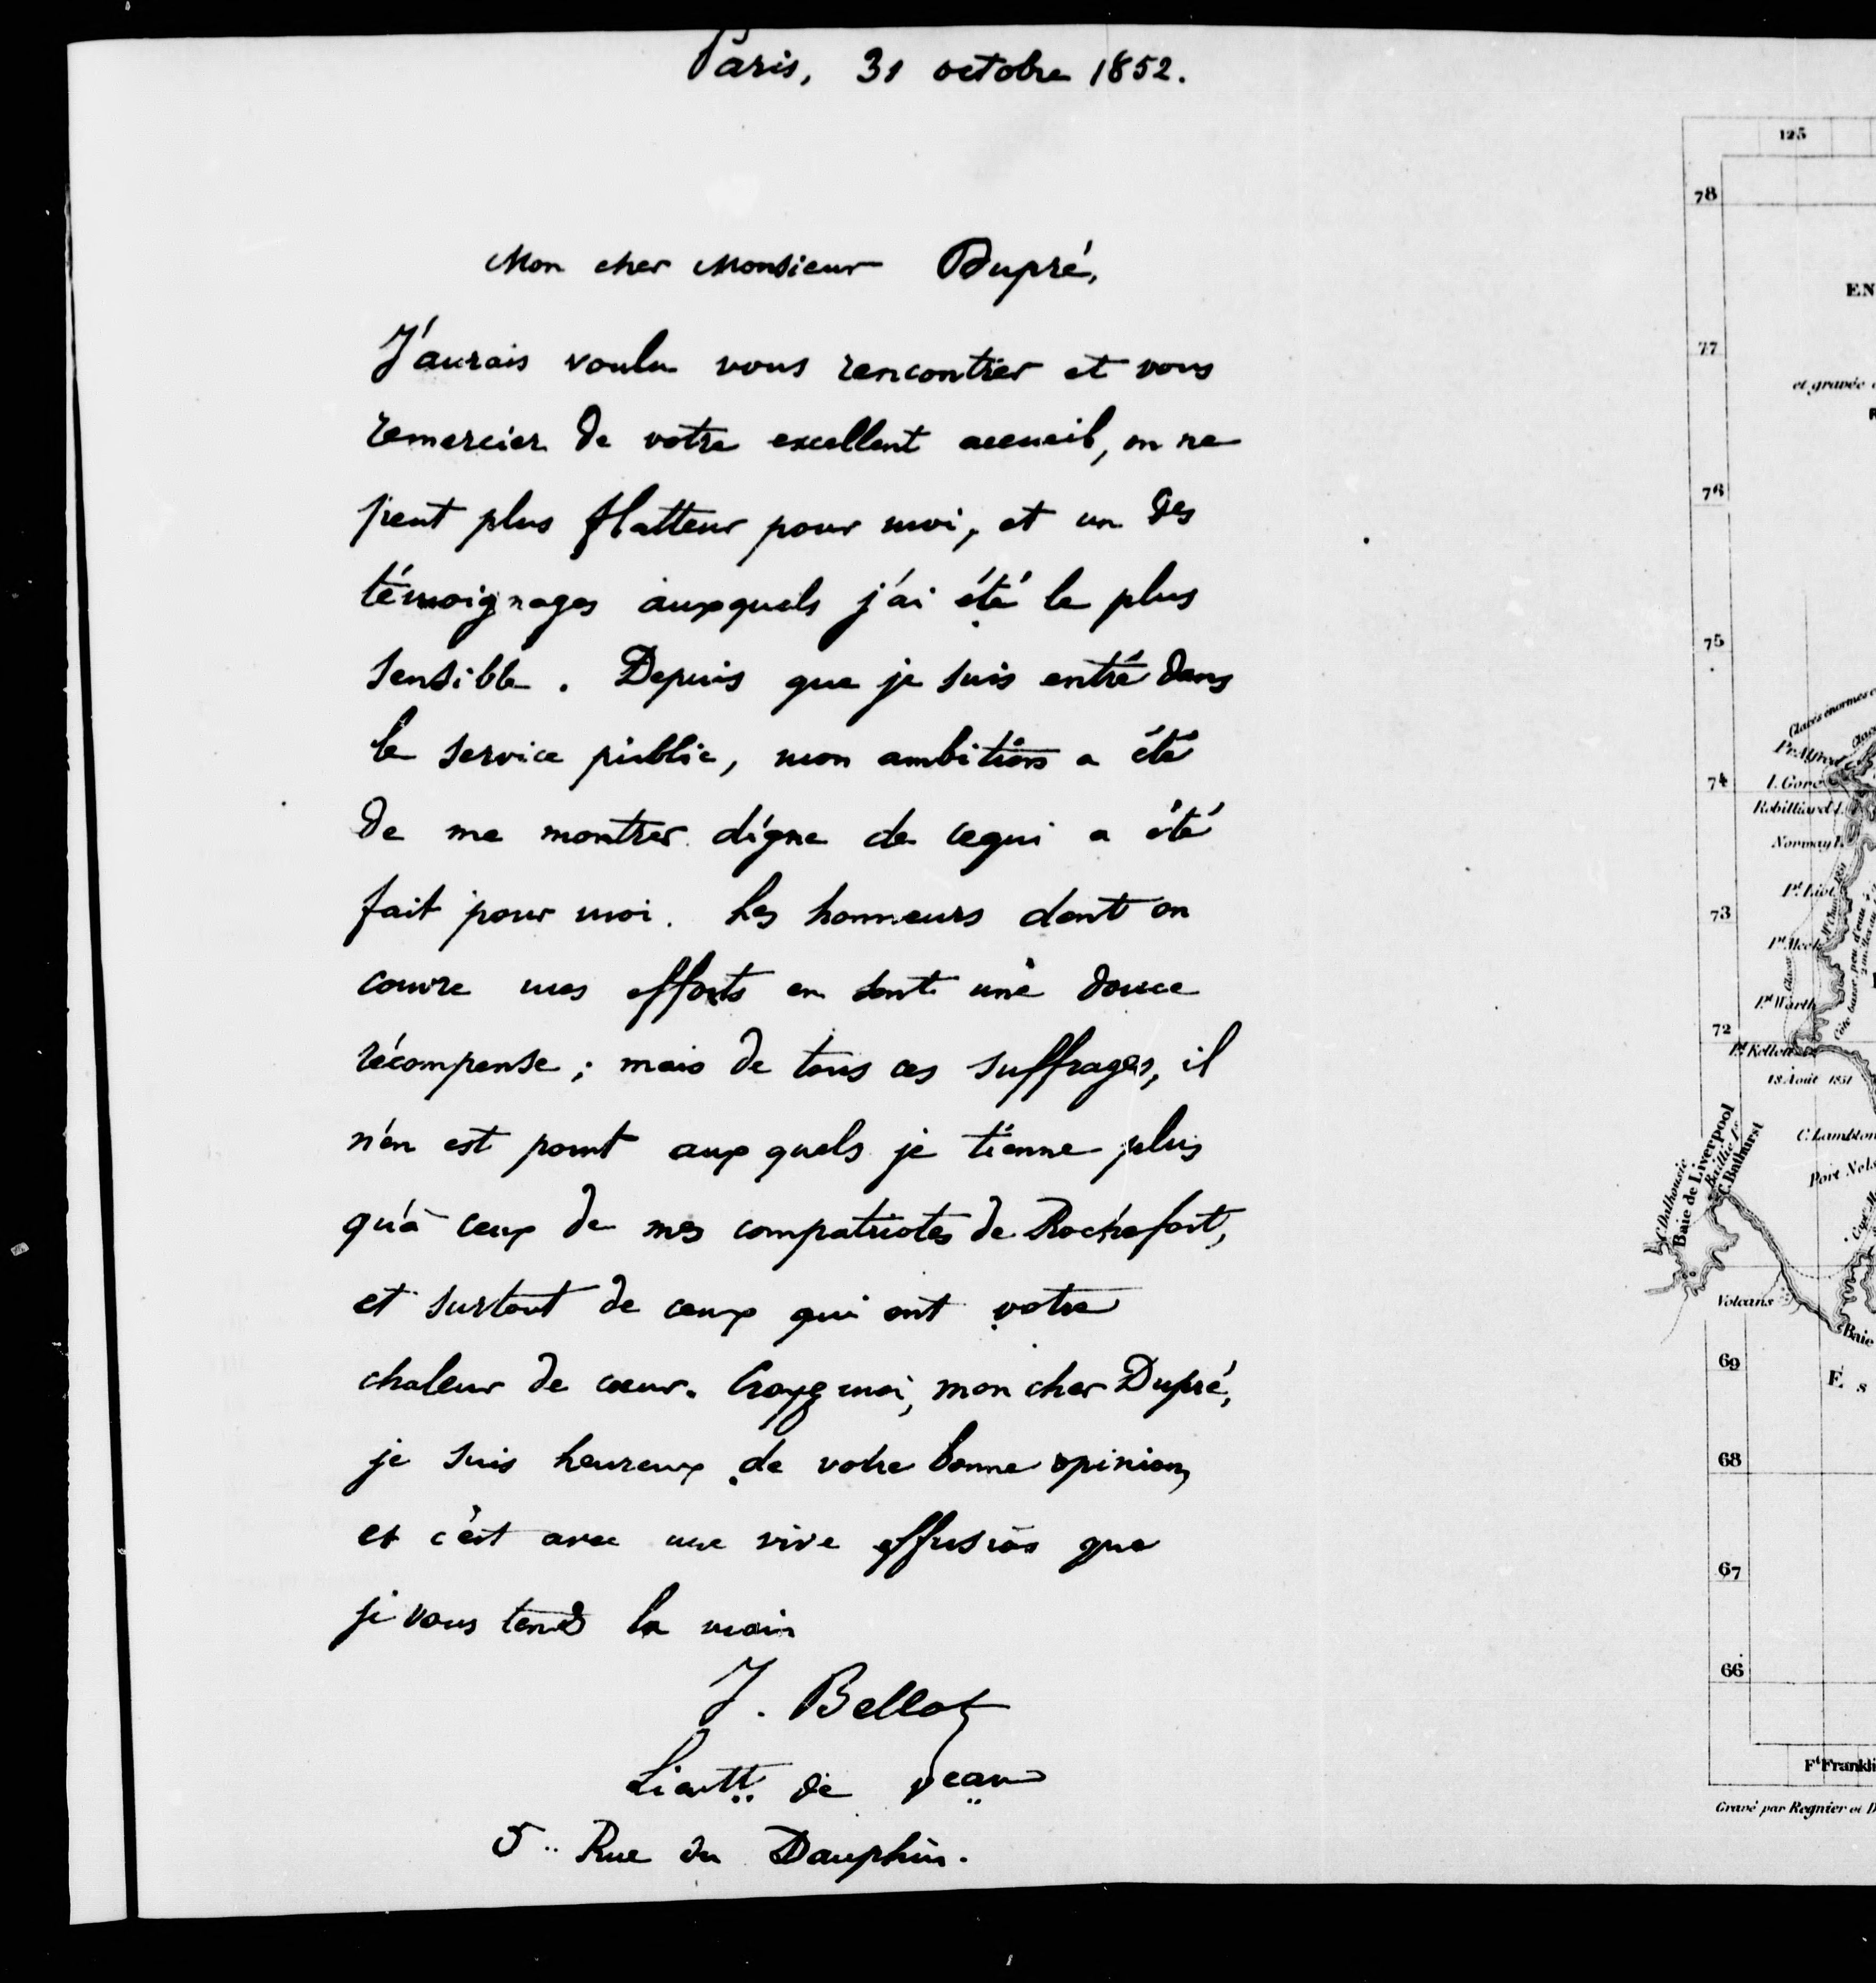 Paris, 31 octobre 1852.
Mon cher Monsieur Dupré,
J'aurais voulu vous rencontrer et vous
remercier de votre excellent accueil, on ne
peut plus flatteur pour moi, et un des
témoignages auxquels j'ai été le plus
sensible. Depuis que je suis entré dans
le service public, mon ambition a été
de me montrer digne de ce qui a été
fait pour moi. Les honneurs dont on
couvre mes efforts en sont une douce
récompense ; mais de tous ces suffrages, il
n'en est point auxquels je tienne plus
qu'à ceux de mes compatriotes de Rochefort,
et surtout de ceux qui ont votre
chaleur de cœur. Croyez moi, mon cher Dupré,
je suis heureux de votre bonne opinion,
et c'est avec une vive effusion que
je vous tends la main
J. Bellot
Lieutt. de veau
5.. Rue du Dauphin.
125
78
EN
77
et gravée
76
75
Glaces énormes
Pce Alfred
74
I. Gore
Robilliard I.
Norway I.
Pt. Liot
73
Pt. Meek
Pt. Warth
72
Pt. Kellett
18 Août 1851
C. Lambton
Port Nels
C. Dalhousie
Baie de Liverpool
Baillie Is
C. Bathurst
Volcans
Baie
69
E s
68
67
66
Ft Frankli
Gravé par Regnier et D